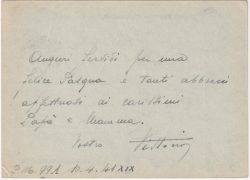 Auguri fervidi per una
felice Pasqua e tanti abbracci
affettuosi ai carissimi
Papà e Mamma.
Vostro Vittorio
P.M. 99A 10.4.41 XIX